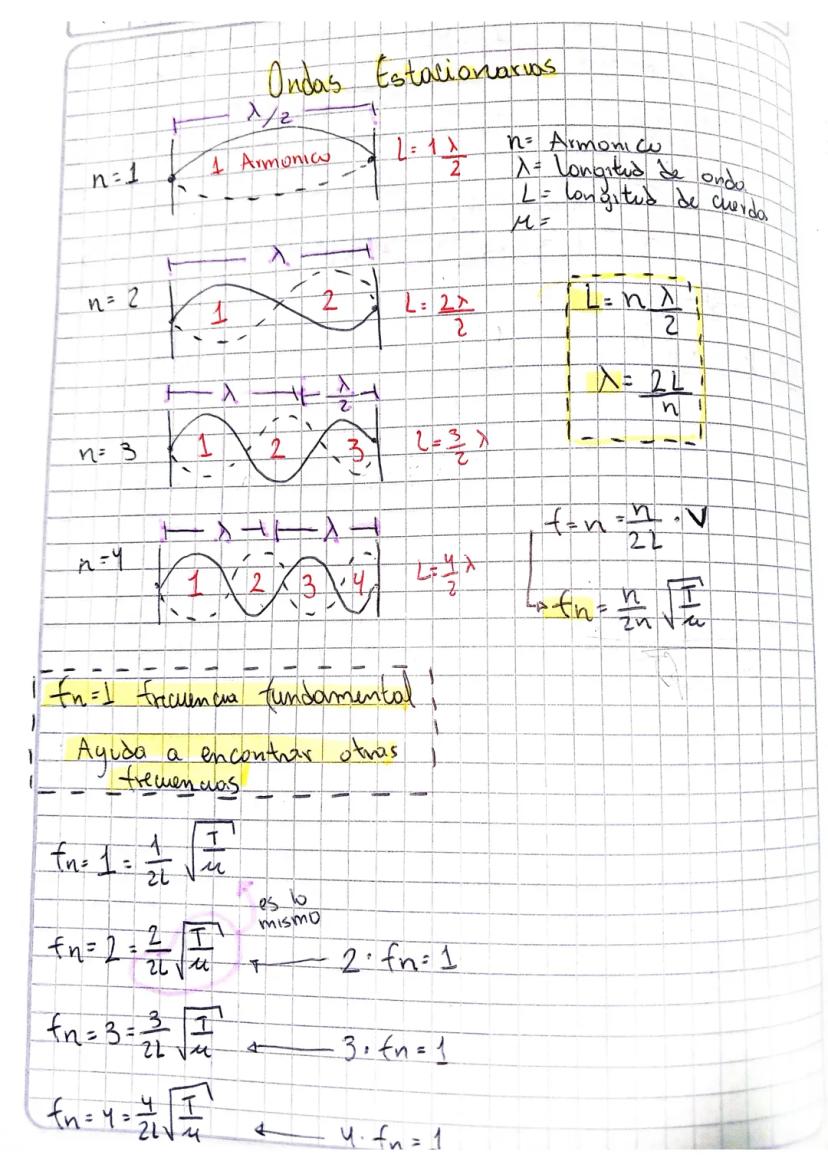 Ondas Estacionarias
λ/2
n=1
1 Armonico
L= 1 λ/2
n= Armonico
λ= longitud de onda
L= longitud de cuerda
μ=
λ
n= 2
1 2
L= 2λ/2
L= n λ/2
λ= 2L/n
λ λ/2
n= 3
1 2 3
L= 3/2 λ
λ λ
n=4
1 2 3 4
L= 4/2 λ
f=n = n/2L · V
fn = n/2n √T/μ
fn=1 frecuencia fundamental
Ayuda a encontrar otras
frecuencias
fn= 1 = 1/2L √T/μ
es lo
mismo
fn= 2 = 2/2L √T/μ ← 2 · fn= 1
fn= 3 = 3/2L √T/μ ← 3 · fn= 1
fn= 4 = 4/2L √T/μ ← 4 · fn= 1